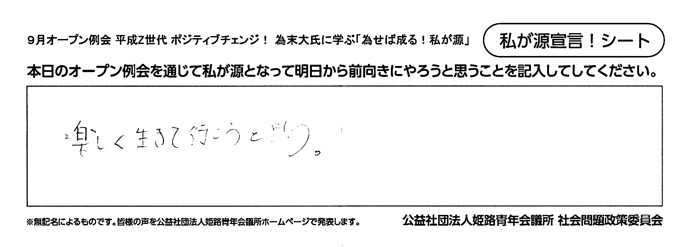 9月オープン例会 平成Z世代 ポジティブチェンジ！ 為末大氏に学ぶ「為せば成る！私が源」
私が源宣言！シート
本日のオープン例会を通じて私が源となって明日から前向きにやろうと思うことを記入してしてください。
楽しく生きて行こうと思う。
※無記名によるものです。皆様の声を公益社団法人姫路青年会議所ホームページで発表します。
公益社団法人姫路青年会議所 社会問題政策委員会